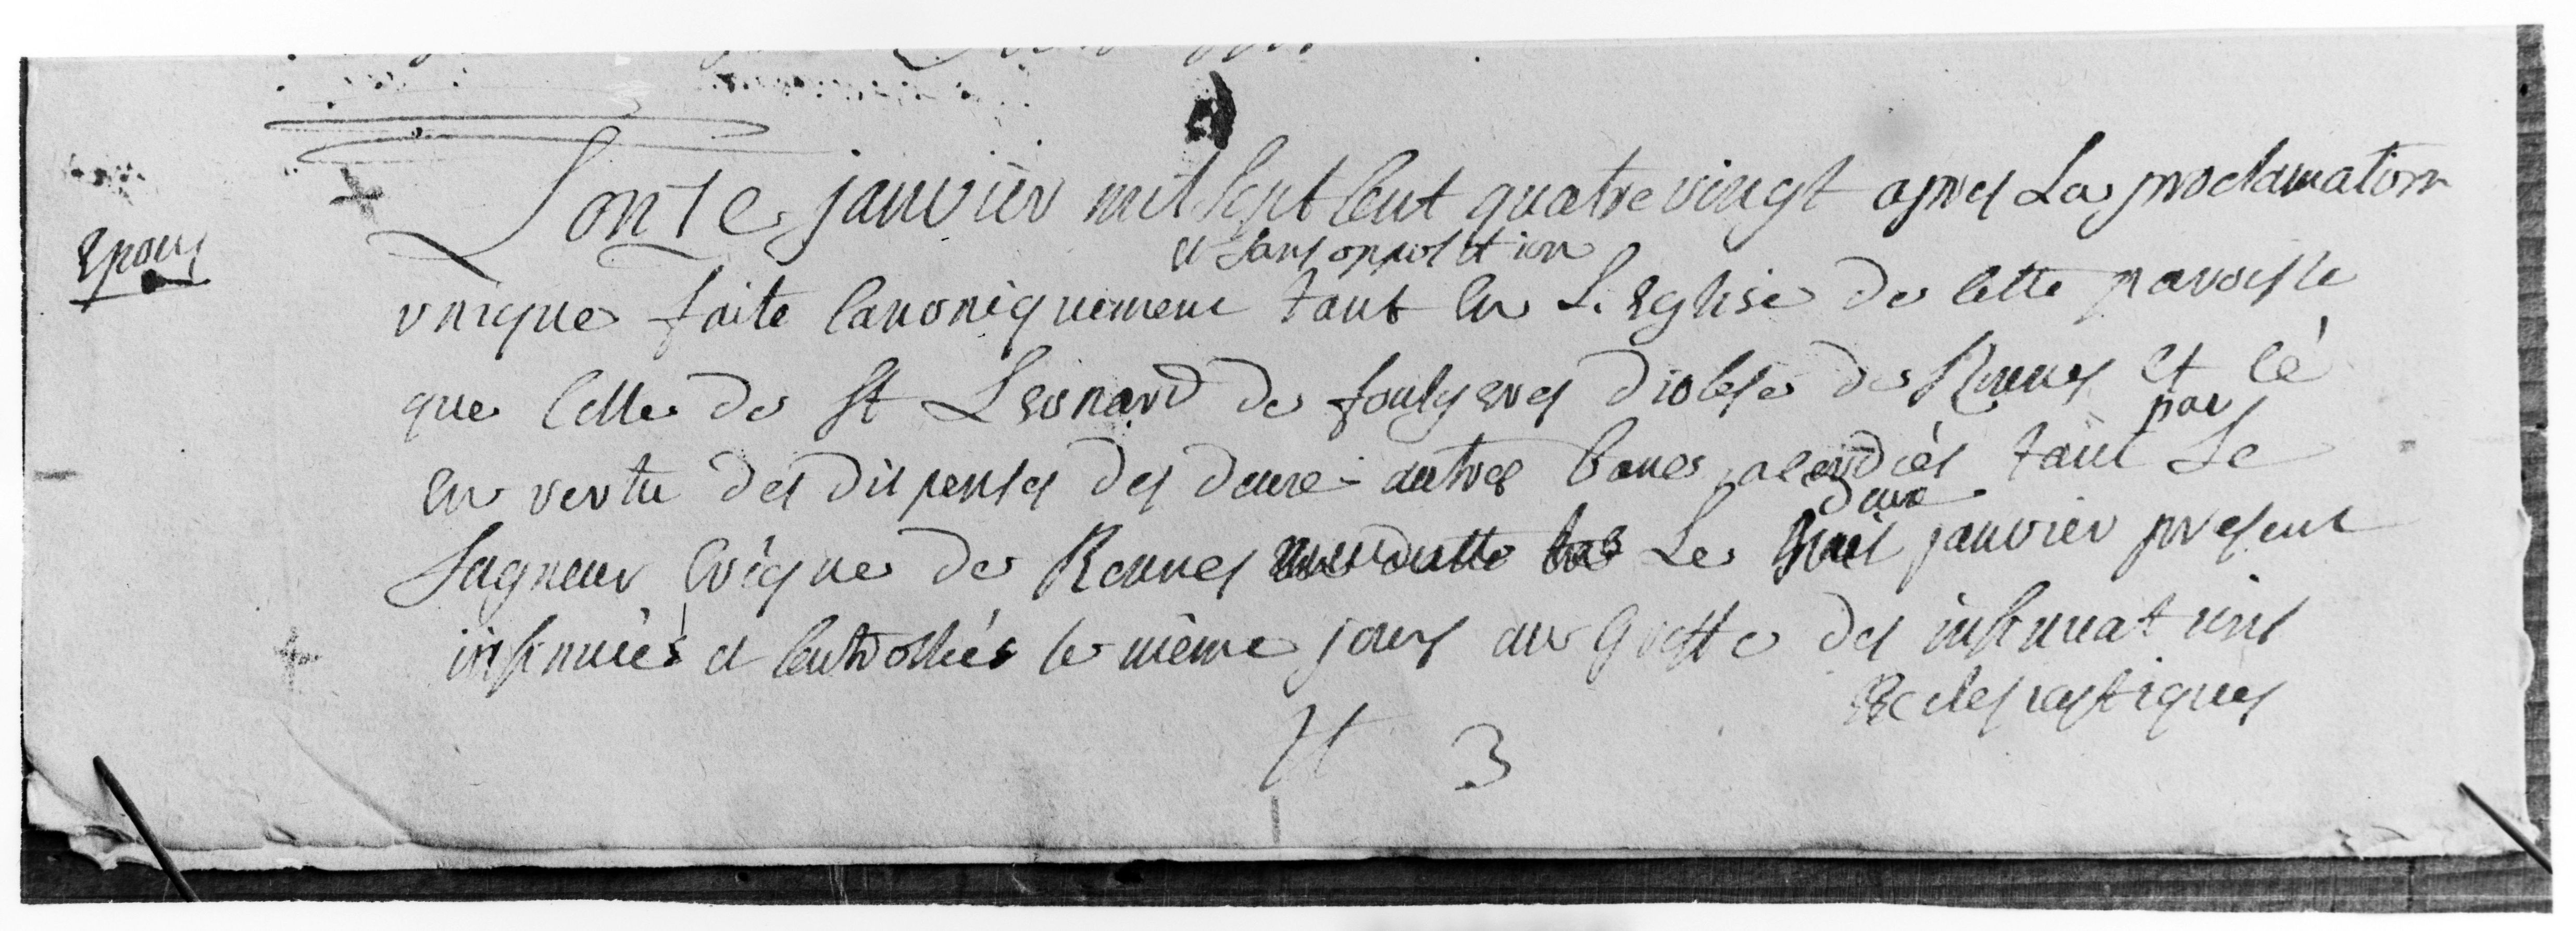 Epous
L'onze janvier mil sept cent quatre vingt apres La proclamation
et sans opposition
unique faite canoniquement tant en L'Eglise de cette paroisse
que celle de St Leonard de foulgeres diocese de Rennes et ce
par
en vertu des dispenses des deux autres bancs accordées tant Le
deux
Seigneur Evêque de Rennes Le janvier present
insinuées et controllées le même jour au Greffe des insinuations
Ecclesiastiques
3